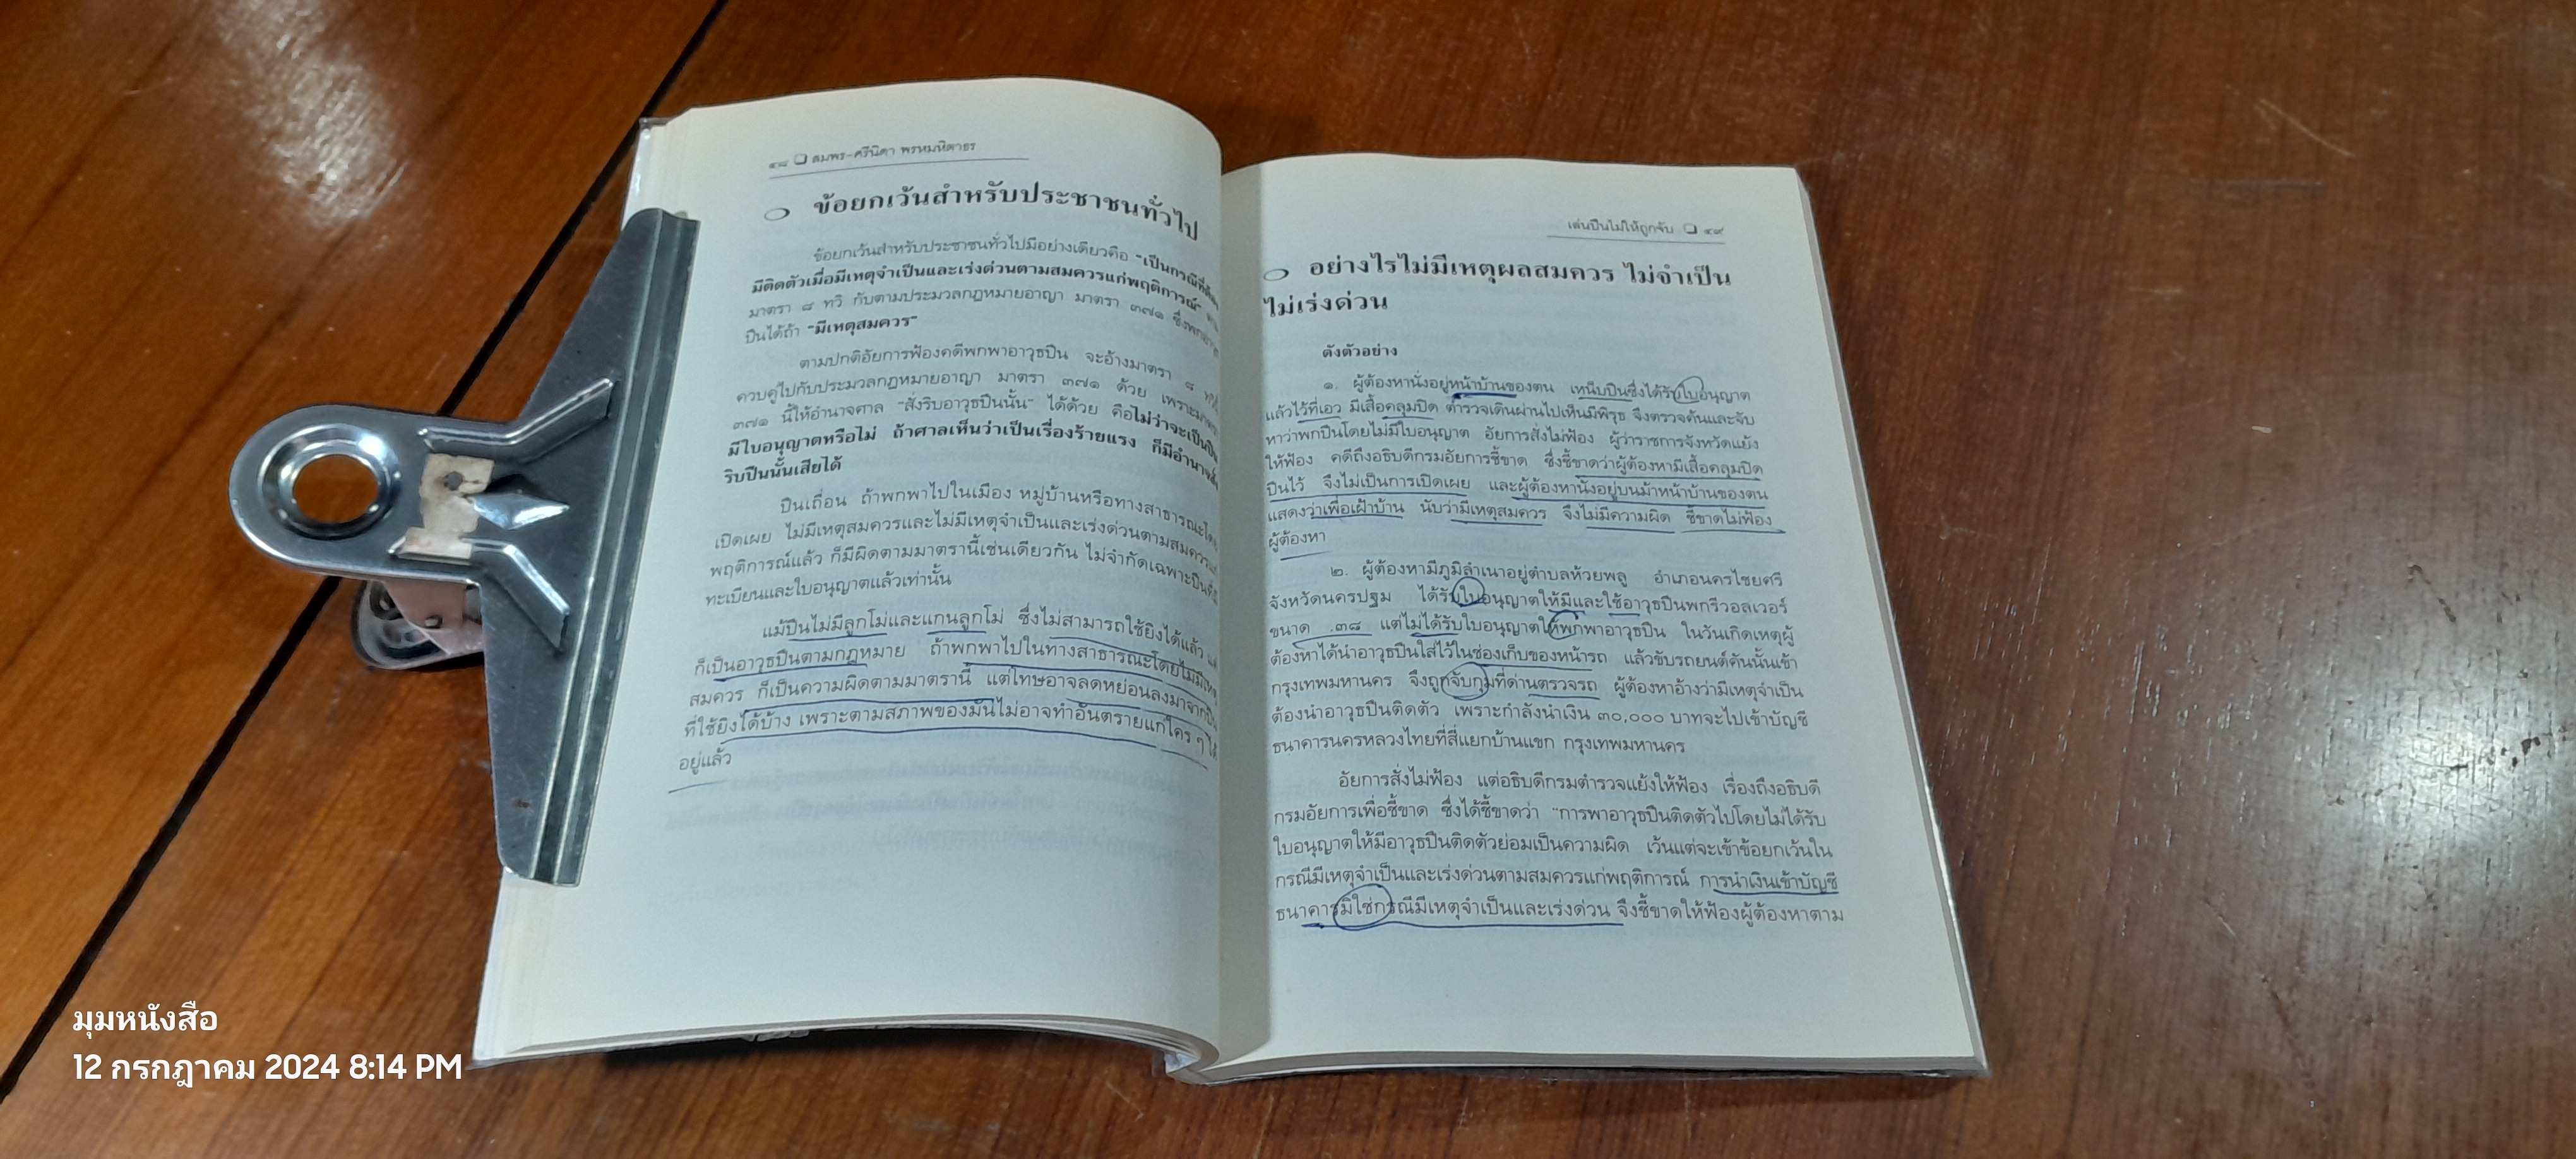 ๔๘ ❑ สมพร-ศรีนิดา พรหมหิตาธร
ข้อยกเว้นสำหรับประชาชนทั่วไป
ข้อยกเว้นสำหรับประชาชนทั่วไปมีอย่างเดียวคือ "เป็นกรณีที่ต้อง
มีติดตัวเมื่อมีเหตุจำเป็นและเร่งด่วนตามสมควรแก่พฤติการณ์"
มาตรา ๘ ทวิ กับตามประมวลกฎหมายอาญา มาตรา ๓๗๑ ซึ่งพก
ปืนได้ถ้า "มีเหตุสมควร"
ตามปกติอัยการฟ้องคดีพกพาอาวุธปืน จะอ้างมาตรา ๘ ทวิ
ควบคู่ไปกับประมวลกฎหมายอาญา มาตรา ๓๗๑ ด้วย เพราะมาตรา
๓๗๑ นี้ให้อำนาจศาล "สั่งริบอาวุธปืนนั้น" ได้ด้วย คือไม่ว่าจะเป็นปืน
มีใบอนุญาตหรือไม่ ถ้าศาลเห็นว่าเป็นเรื่องร้ายแรง ก็มีอำนาจสั่ง
ริบปืนนั้นเสียได้
ปืนเถื่อน ถ้าพกพาไปในเมือง หมู่บ้านหรือทางสาธารณะโดย
เปิดเผย ไม่มีเหตุสมควรและไม่มีเหตุจำเป็นและเร่งด่วนตามสมควรแก่
พฤติการณ์แล้ว ก็มีผิดตามมาตรานี้เช่นเดียวกัน ไม่จำกัดเฉพาะปืนที่มี
ทะเบียนและใบอนุญาตแล้วเท่านั้น
แม้ปืนไม่มีลูกโม่และแกนลูกโม่ ซึ่งไม่สามารถใช้ยิงได้แล้ว แต่
ก็เป็นอาวุธปืนตามกฎหมาย ถ้าพกพาไปในทางสาธารณะโดยไม่มีเหตุ
สมควร ก็เป็นความผิดตามมาตรานี้ แต่โทษอาจลดหย่อนลงมาจากปืน
ที่ใช้ยิงได้บ้าง เพราะตามสภาพของมันไม่อาจทำอันตรายแก่ใคร ๆ ได้
อยู่แล้ว
เล่นปืนไม่ให้ถูกจับ ❑ ๔๙
อย่างไรไม่มีเหตุผลสมควร ไม่จำเป็น
ไม่เร่งด่วน
ดังตัวอย่าง
๑. ผู้ต้องหานั่งอยู่หน้าบ้านของตน เหน็บปืนซึ่งได้รับใบอนุญาต
แล้วไว้ที่เอว มีเสื้อคลุมปิด ตำรวจเดินผ่านไปเห็นมีพิรุธ จึงตรวจค้นและจับ
หาว่าพกปืนโดยไม่มีใบอนุญาต อัยการสั่งไม่ฟ้อง ผู้ว่าราชการจังหวัดแย้ง
ให้ฟ้อง คดีถึงอธิบดีกรมอัยการชี้ขาด ซึ่งชี้ขาดว่าผู้ต้องหามีเสื้อคลุมปิด
ปืนไว้ จึงไม่เป็นการเปิดเผย และผู้ต้องหานั่งอยู่บนม้าหน้าบ้านของตน
แสดงว่าเพื่อเฝ้าบ้าน นับว่ามีเหตุสมควร จึงไม่มีความผิด ชี้ขาดไม่ฟ้อง
ผู้ต้องหา
๒. ผู้ต้องหามีภูมิลำเนาอยู่ตำบลห้วยพลู อำเภอนครไชยศรี
จังหวัดนครปฐม ได้รับใบอนุญาตให้มีและใช้อาวุธปืนพกรีวอลเวอร์
ขนาด .๓๘ แต่ไม่ได้รับใบอนุญาตให้พกพาอาวุธปืน ในวันเกิดเหตุผู้
ต้องหาได้นำอาวุธปืนใส่ไว้ในช่องเก็บของหน้ารถ แล้วขับรถยนต์คันนั้นเข้า
กรุงเทพมหานคร จึงถูกจับกุมที่ด่านตรวจรถ ผู้ต้องหาอ้างว่ามีเหตุจำเป็น
ต้องนำอาวุธปืนติดตัว เพราะกำลังนำเงิน ๓๐,๐๐๐ บาทจะไปเข้าบัญชี
ธนาคารนครหลวงไทยที่สี่แยกบ้านแขก กรุงเทพมหานคร
อัยการสั่งไม่ฟ้อง แต่อธิบดีกรมตำรวจแย้งให้ฟ้อง เรื่องถึงอธิบดี
กรมอัยการเพื่อชี้ขาด ซึ่งได้ชี้ขาดว่า "การพาอาวุธปืนติดตัวไปโดยไม่ได้รับ
ใบอนุญาตให้มีอาวุธปืนติดตัวย่อมเป็นความผิด เว้นแต่จะเข้าข้อยกเว้นใน
กรณีมีเหตุจำเป็นและเร่งด่วนตามสมควรแก่พฤติการณ์ การนำเงินเข้าบัญชี
ธนาคารมิใช่กรณีมีเหตุจำเป็นและเร่งด่วน จึงชี้ขาดให้ฟ้องผู้ต้องหาตาม
มุมหนังสือ
12 กรกฎาคม 2024 8:14 PM